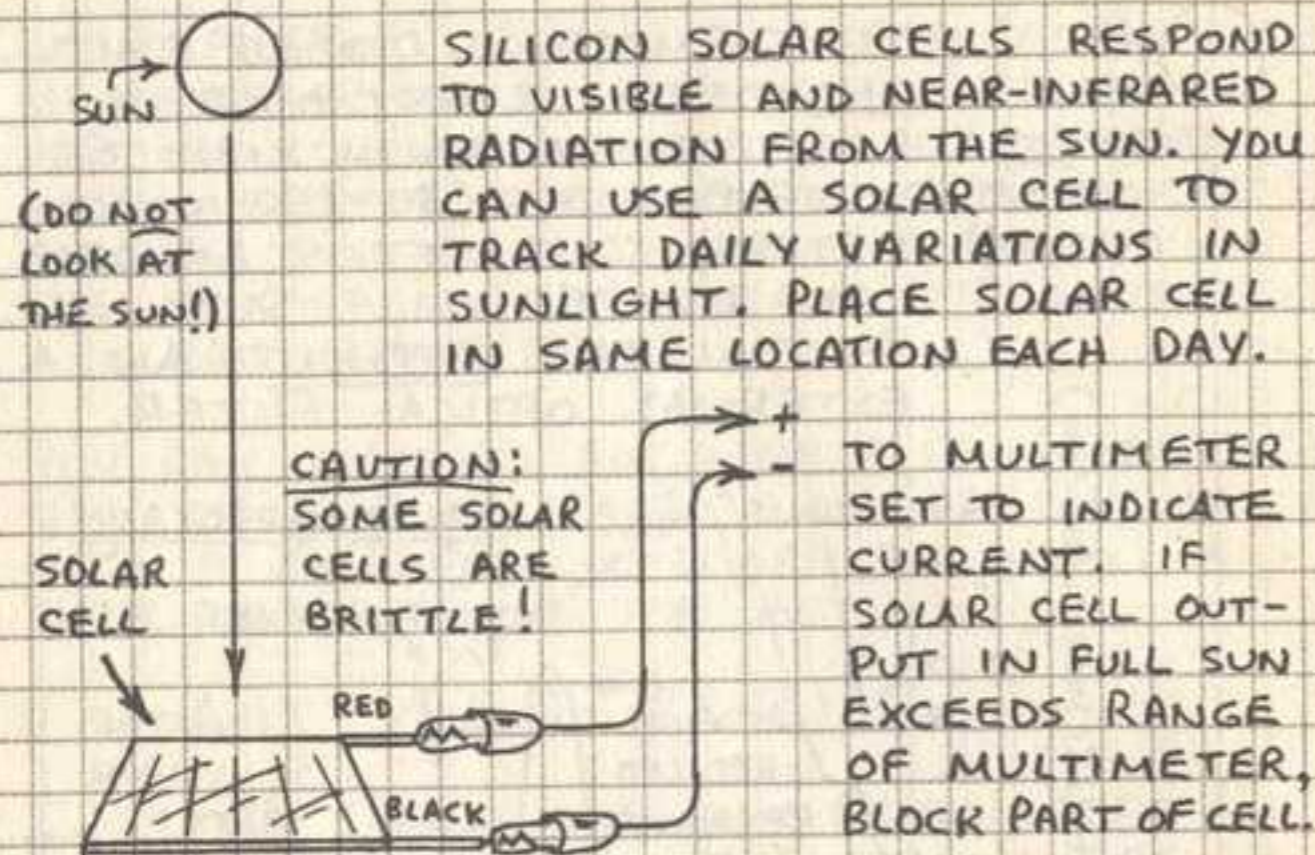 SUN
(DO NOT
LOOK AT
THE SUN!)
SILICON SOLAR CELLS RESPOND
TO VISIBLE AND NEAR-INFRARED
RADIATION FROM THE SUN. YOU
CAN USE A SOLAR CELL TO
TRACK DAILY VARIATIONS IN
SUNLIGHT. PLACE SOLAR CELL
IN SAME LOCATION EACH DAY.
CAUTION:
SOME SOLAR
CELLS ARE
BRITTLE!
SOLAR
CELL
RED
BLACK
+
-
TO MULTIMETER
SET TO INDICATE
CURRENT. IF
SOLAR CELL OUT-
PUT IN FULL SUN
EXCEEDS RANGE
OF MULTIMETER,
BLOCK PART OF CELL.